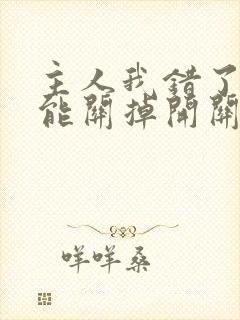 主人我错了
能關掉開關
咩咩桑